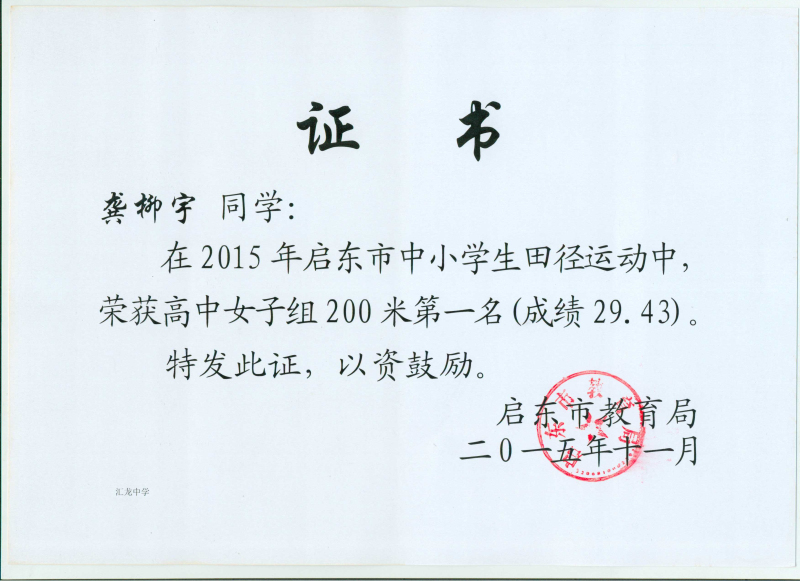 证 书
龚柳宇 同学：
在2015年启东市中小学生田径运动中，
荣获高中女子组200米第一名(成绩29.43)。
特发此证，以资鼓励。
启东市教育局
二0一五年十一月
汇龙中学